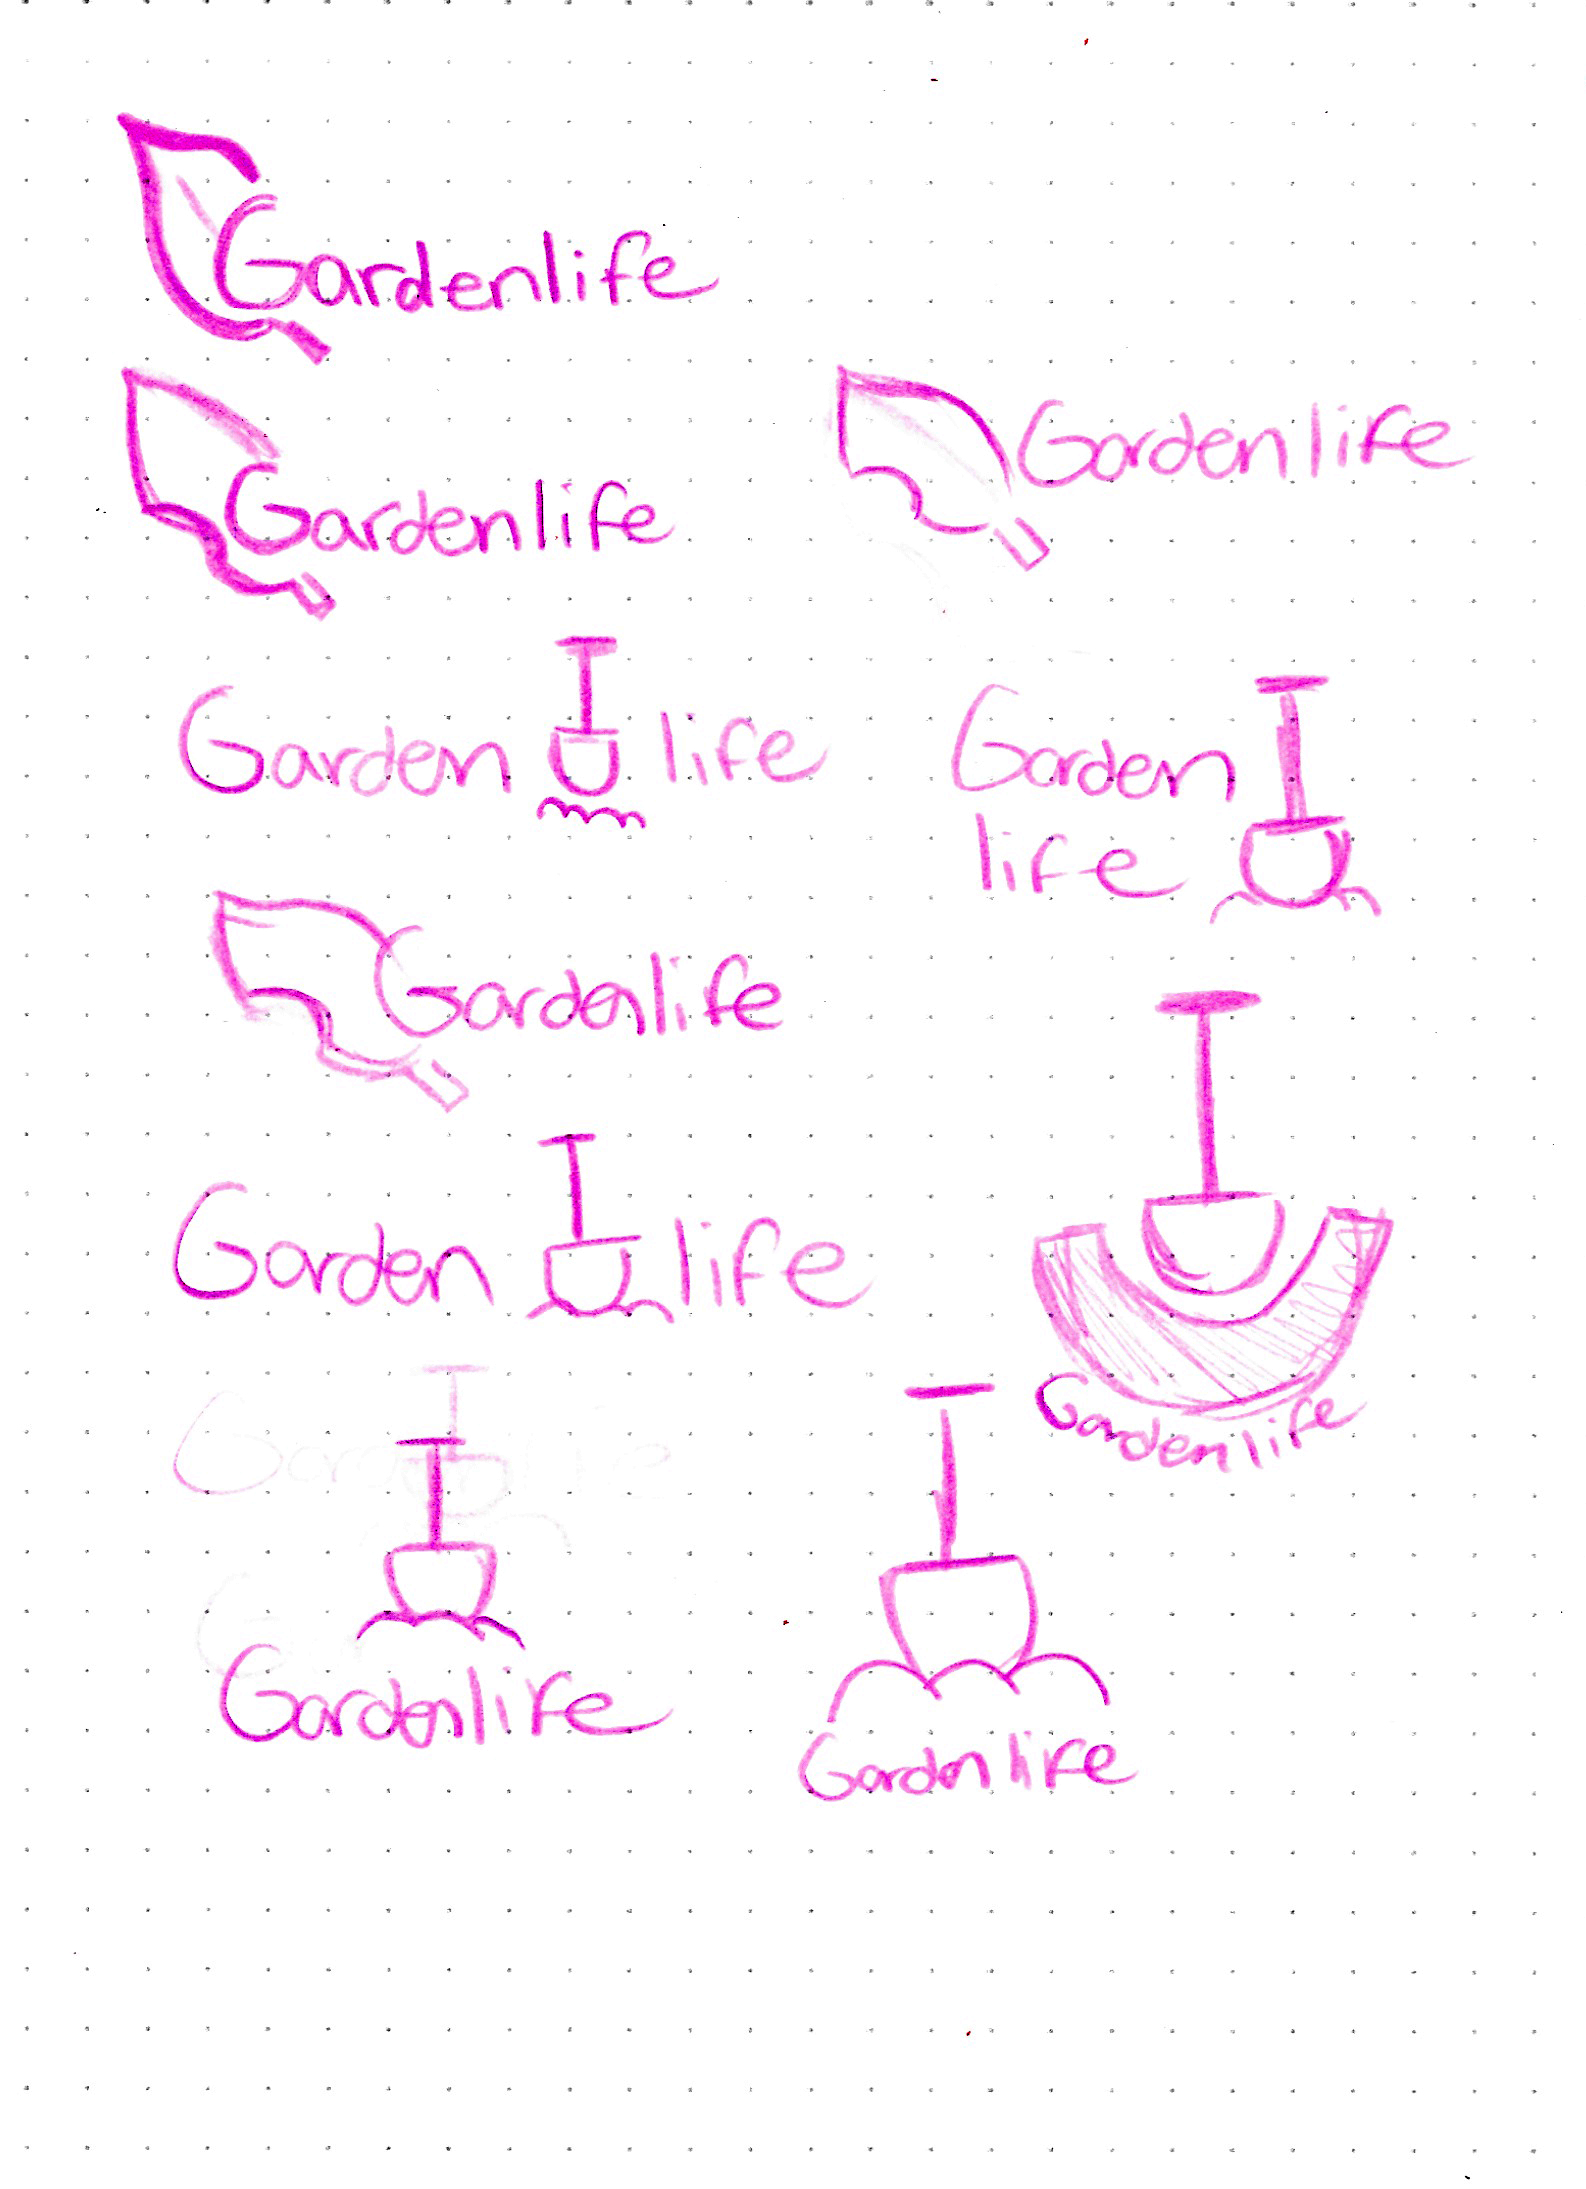 Gardenlife
Gardenlife
Gardenlife
Garden life
Garden
life
Gardenlife
Garden life
Gardenlife
Gardenlife
Gardenlife